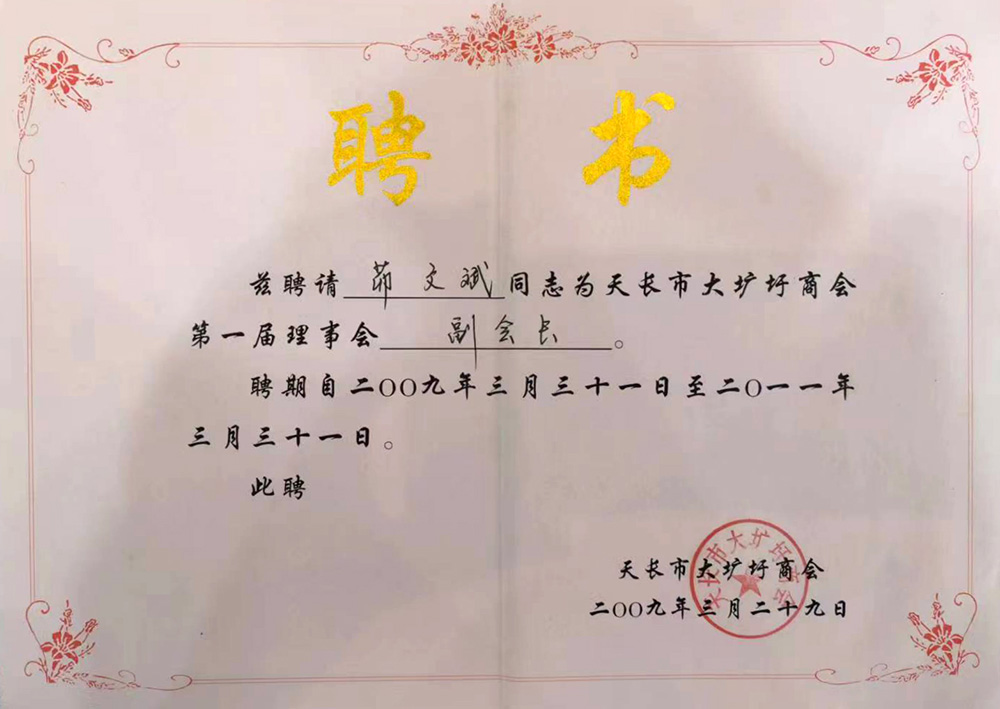 聘书
兹聘请茆文斌同志为天长市大圹圩商会
第一届理事会副会长。
聘期自二〇〇九年三月三十一日至二〇一一年
三月三十一日。
此聘
天长市大圹圩商会
二〇〇九年三月二十九日
天长市大圹圩商会